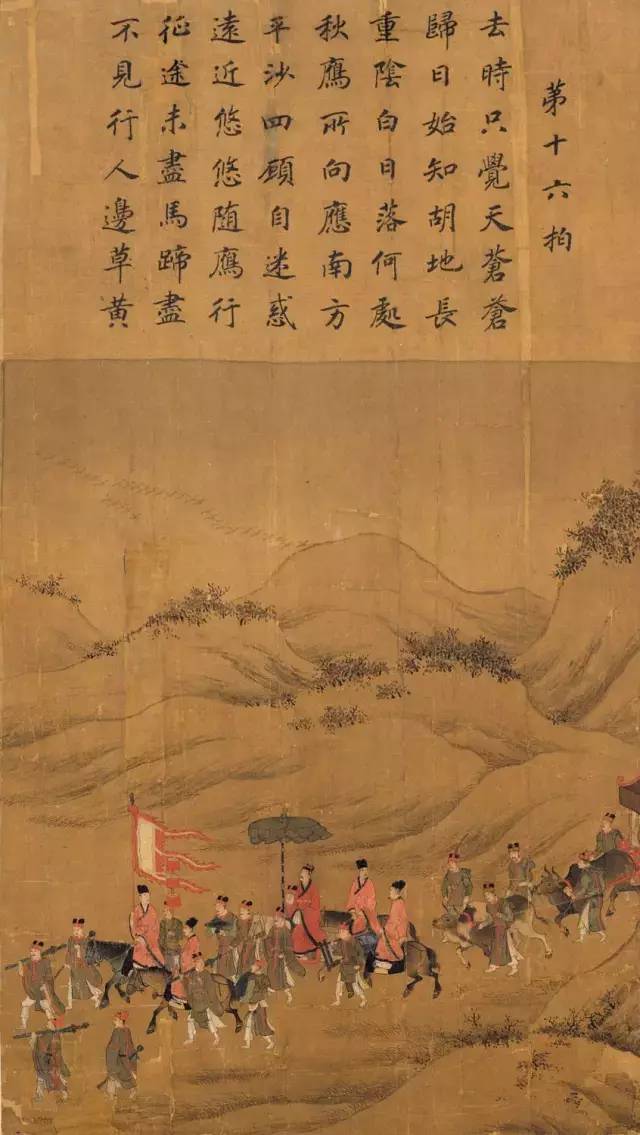 第十六拍
去時只覺天蒼蒼
歸日始知胡地長
重陰白日落何處
秋鴈所向應南方
平沙四顧自迷惑
遠近悠悠随鴈行
征途未盡馬蹄盡
不見行人邊草黄